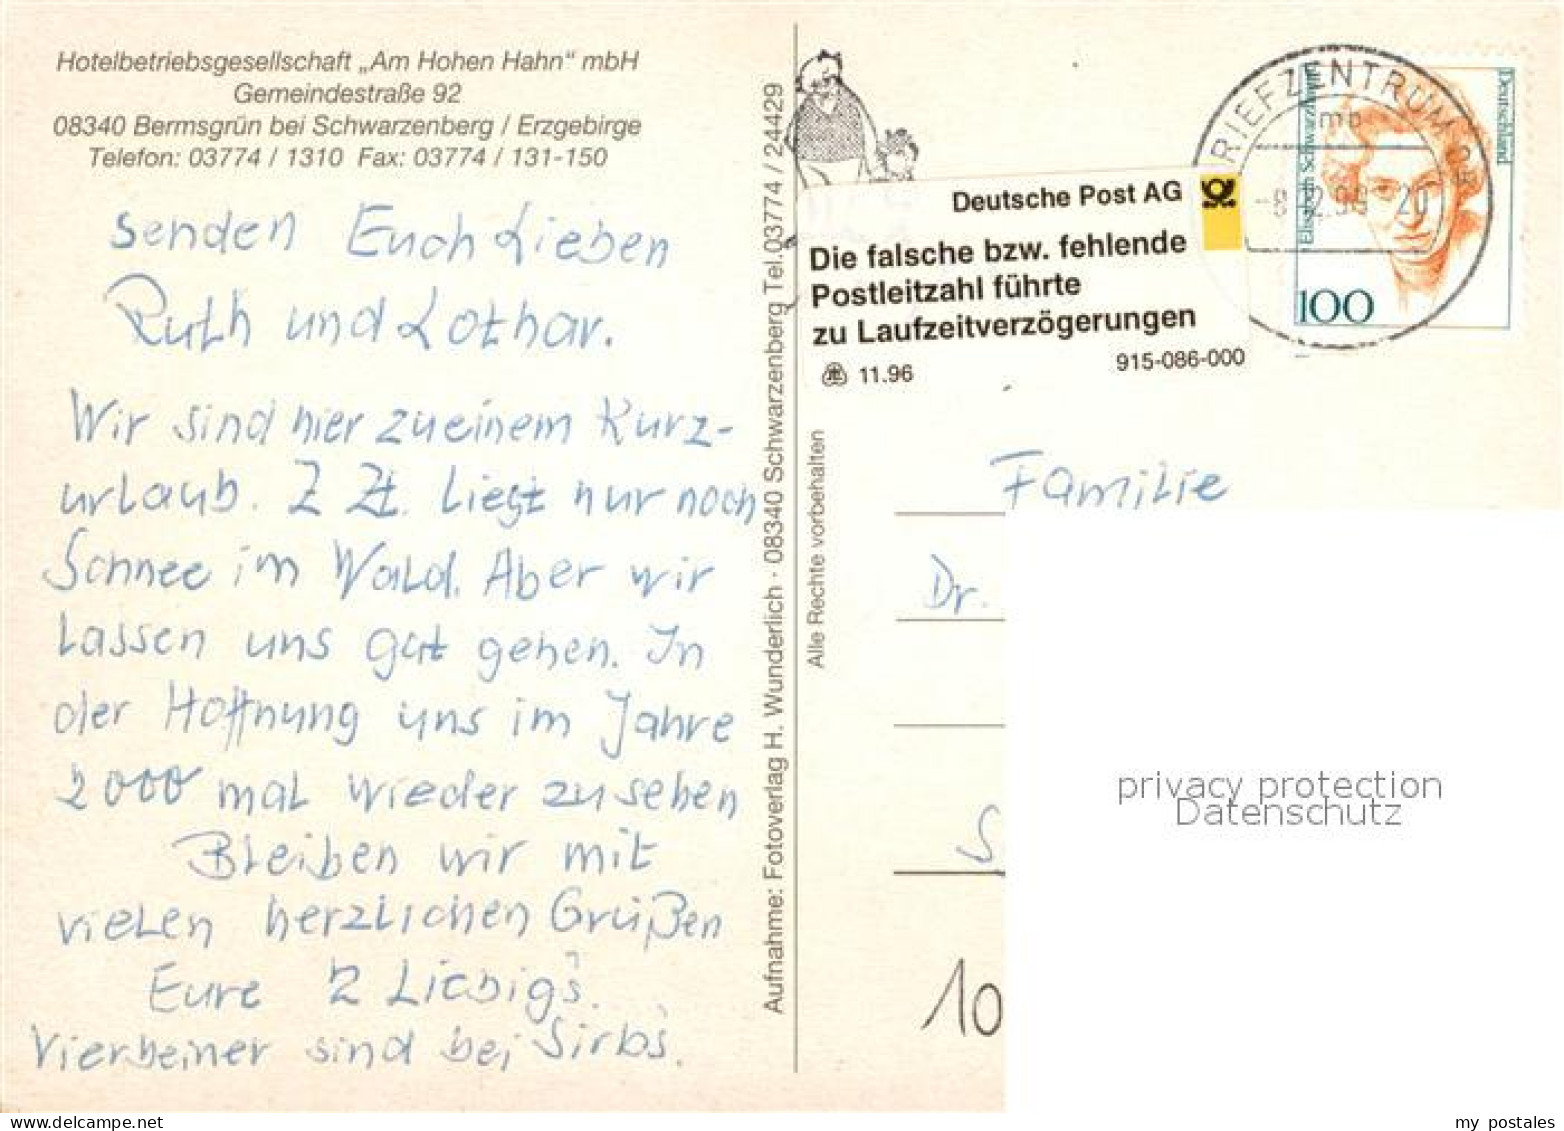 Hotelbetriebsgesellschaft „Am Hohen Hahn" mbH
Gemeindestraße 92
08340 Bermsgrün bei Schwarzenberg / Erzgebirge
Telefon: 03774 / 1310 Fax: 03774 / 131-150
senden Euch Lieben
Ruth und Lothar.
Wir sind hier zu einem Kurz-
urlaub. Z Zt. liegt nur noch
Schnee im Wald. Aber wir
lassen uns gut gehen. In
der Hoffnung uns im Jahre
2000 mal wieder zu sehen
Bleiben wir mit
vielen herzlichen Grüßen
Eure 2 Liebig's.
Vierbeiner sind bei Sirb's.
Aufnahme: Fotoverlag H. Wunderlich · 08340 Schwarzenberg Tel.03774 / 24429
Alle Rechte vorbehalten
Deutsche Post AG
Die falsche bzw. fehlende
Postleitzahl führte
zu Laufzeitverzögerungen
11.96
915-086-000
BRIEFZENTRUM
mb
Deutschland
Elisabeth Schwarzhaupt
100
Familie
Dr.
S
10
privacy protection
Datenschutz
my postales